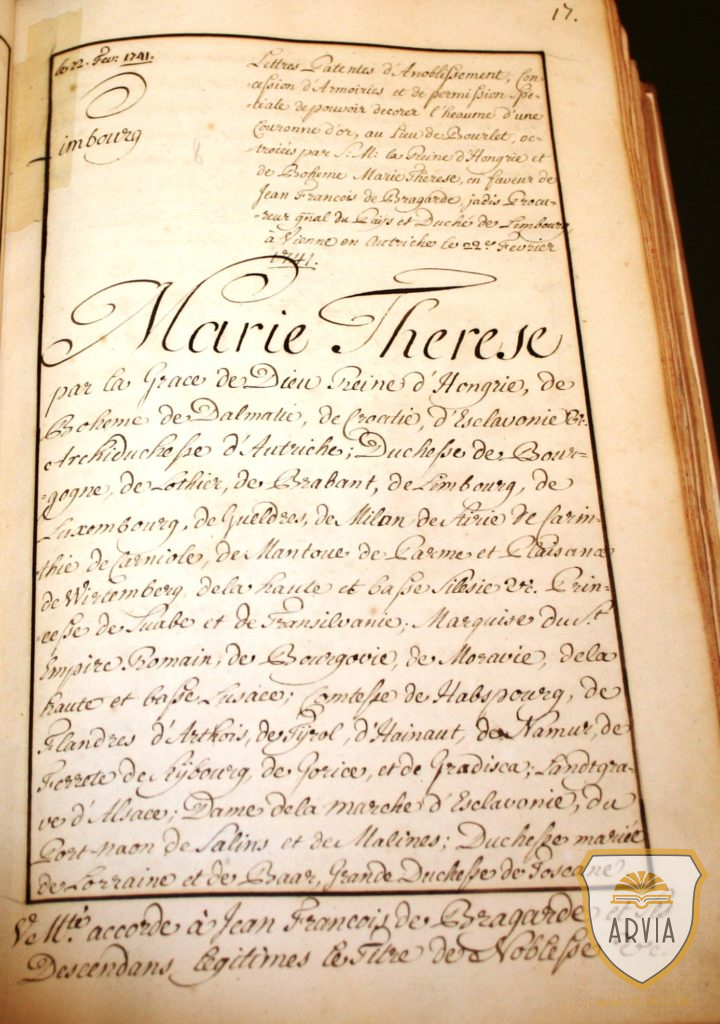 17.
le 22. Fevr. 1741.
Limbourg
Lettres Patentes d'Anoblissement, Con-
-cession d'Armoiries et de permission Spe-
-ciale de pouvoir decorer l'heaume d'une
Couronne d'or, au lieu de Bourlet, oc-
-troiées par S: M: la Reine d'Hongrie et
de Boheme Marie Therese, en faveur de
Jean François de Bragarde, jadis Procu-
-reur gñal du Païs et Duché de Limbourg,
à Vienne en Autriche le 22.e Fevrier
1741.
Marie Therese
par la Grace de Dieu Reine d'Hongrie, de
Boheme de Dalmatie, de Croatie, d'Esclavonie &c.
Archiduchesse d'Autriche; Duchesse de Bour-
-gogne, de Lothier, de Brabant, de Limbourg, de
Luxembourg, de Gueldres, de Milan de Stirie de Carin-
-thie de Carniole, de Mantoue de Parme et Plaisance
de Wirtemberg, de la haute et basse Silesie &c. Prin-
-cesse de Suabe et de Transilvanie; Marquise du St.
Empire Romain, de Bourgovie, de Moravie, de la
haute et basse Lusace; Comtesse de Habspourg, de
Flandres d'Arthois, de Tÿrol, d'Hainaut, de Namur, de
Ferrete de Kÿbourg, de Gorice, et de Gradisca; Landtgra-
ve d'Alsace; Dame de la marche d'Esclavonie, du
Port-naon de Salins et de Malines; Duchesse mariée
de Lorraine et de Baar, Grande Duchesse de Toscane
Ve. Mté. accorde à Jean François de Bragarde et
Descendans legitimes le Titre de Noblesse &c.
ARVIA